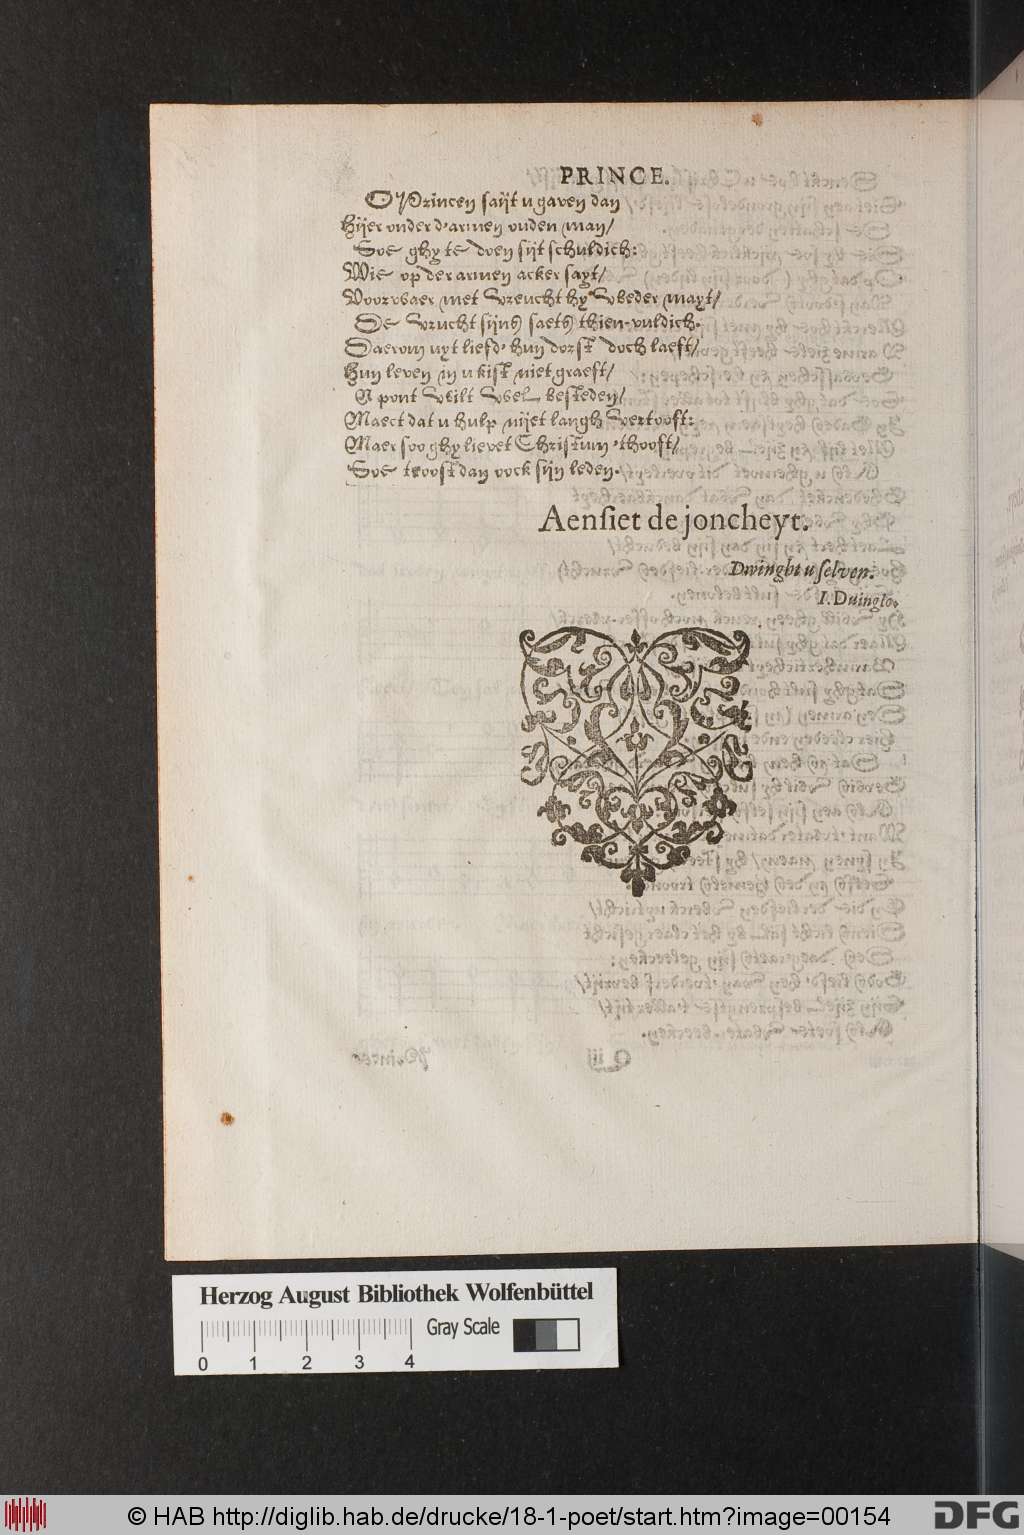 PRINCE.
O Princen saijt u gaven dan
Hijer onder d'armen onden man/
Soe ghy te doen sijt schuldich:
Wie op der armen acker sayt/
Voorwaer met vreucht hy weder mayt/
De vrucht sijns saets thien-vuldich.
Daerom uyt liefd' hun dorst doch laeft/
Hun leven in u kist niet graeft/
U pont wilt wel besteden/
Maect dat u hulp nijet langh vertooft:
Maer soo ghy lievet Christum 'thooft/
Soe troost dan oock sijn leden.
Aensiet de joncheyt.
Dwinght u selven.
I. Duinglo.
Prince
Q iij
Herzog August Bibliothek Wolfenbüttel
Gray Scale
0 1 2 3 4
© HAB http://diglib.hab.de/drucke/18-1-poet/start.htm?image=00154
DFG